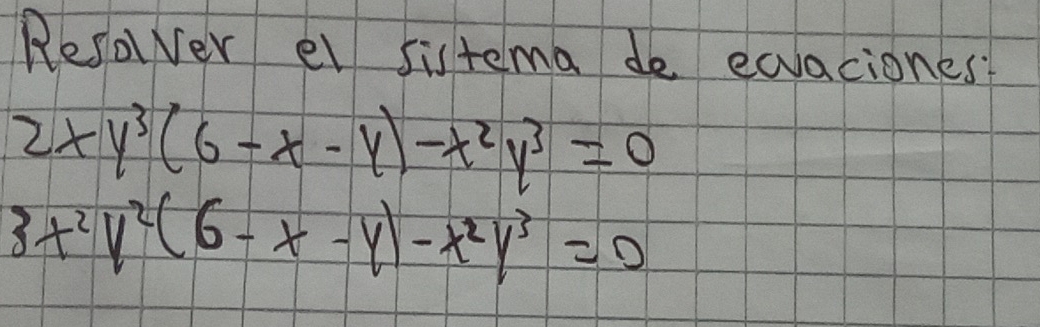 Resolver el sistema de ecuaciones:
2xy³(6-x-y)-x²y³=0
3x²y²(6-x-y)-x²y³=0